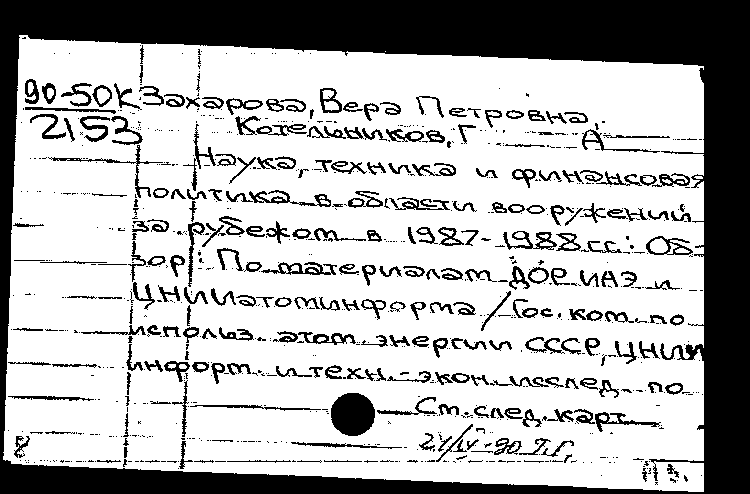 90-50К Захарова, Вера Петровна,
2153 Котельников, Г А
Наука, техника и финансовая
политика в области вооружений
за рубежом в 1987-1988 гг.: Об-
зор: По материалам ДОР ИАЭ и
ЦНИИатоминформа / Гос. ком. по
использ. атом. энергии СССР, ЦНИИ
информ. и техн.-экон. исслед. по
См. след. карт.
24/IV-90 Т.Г.
8